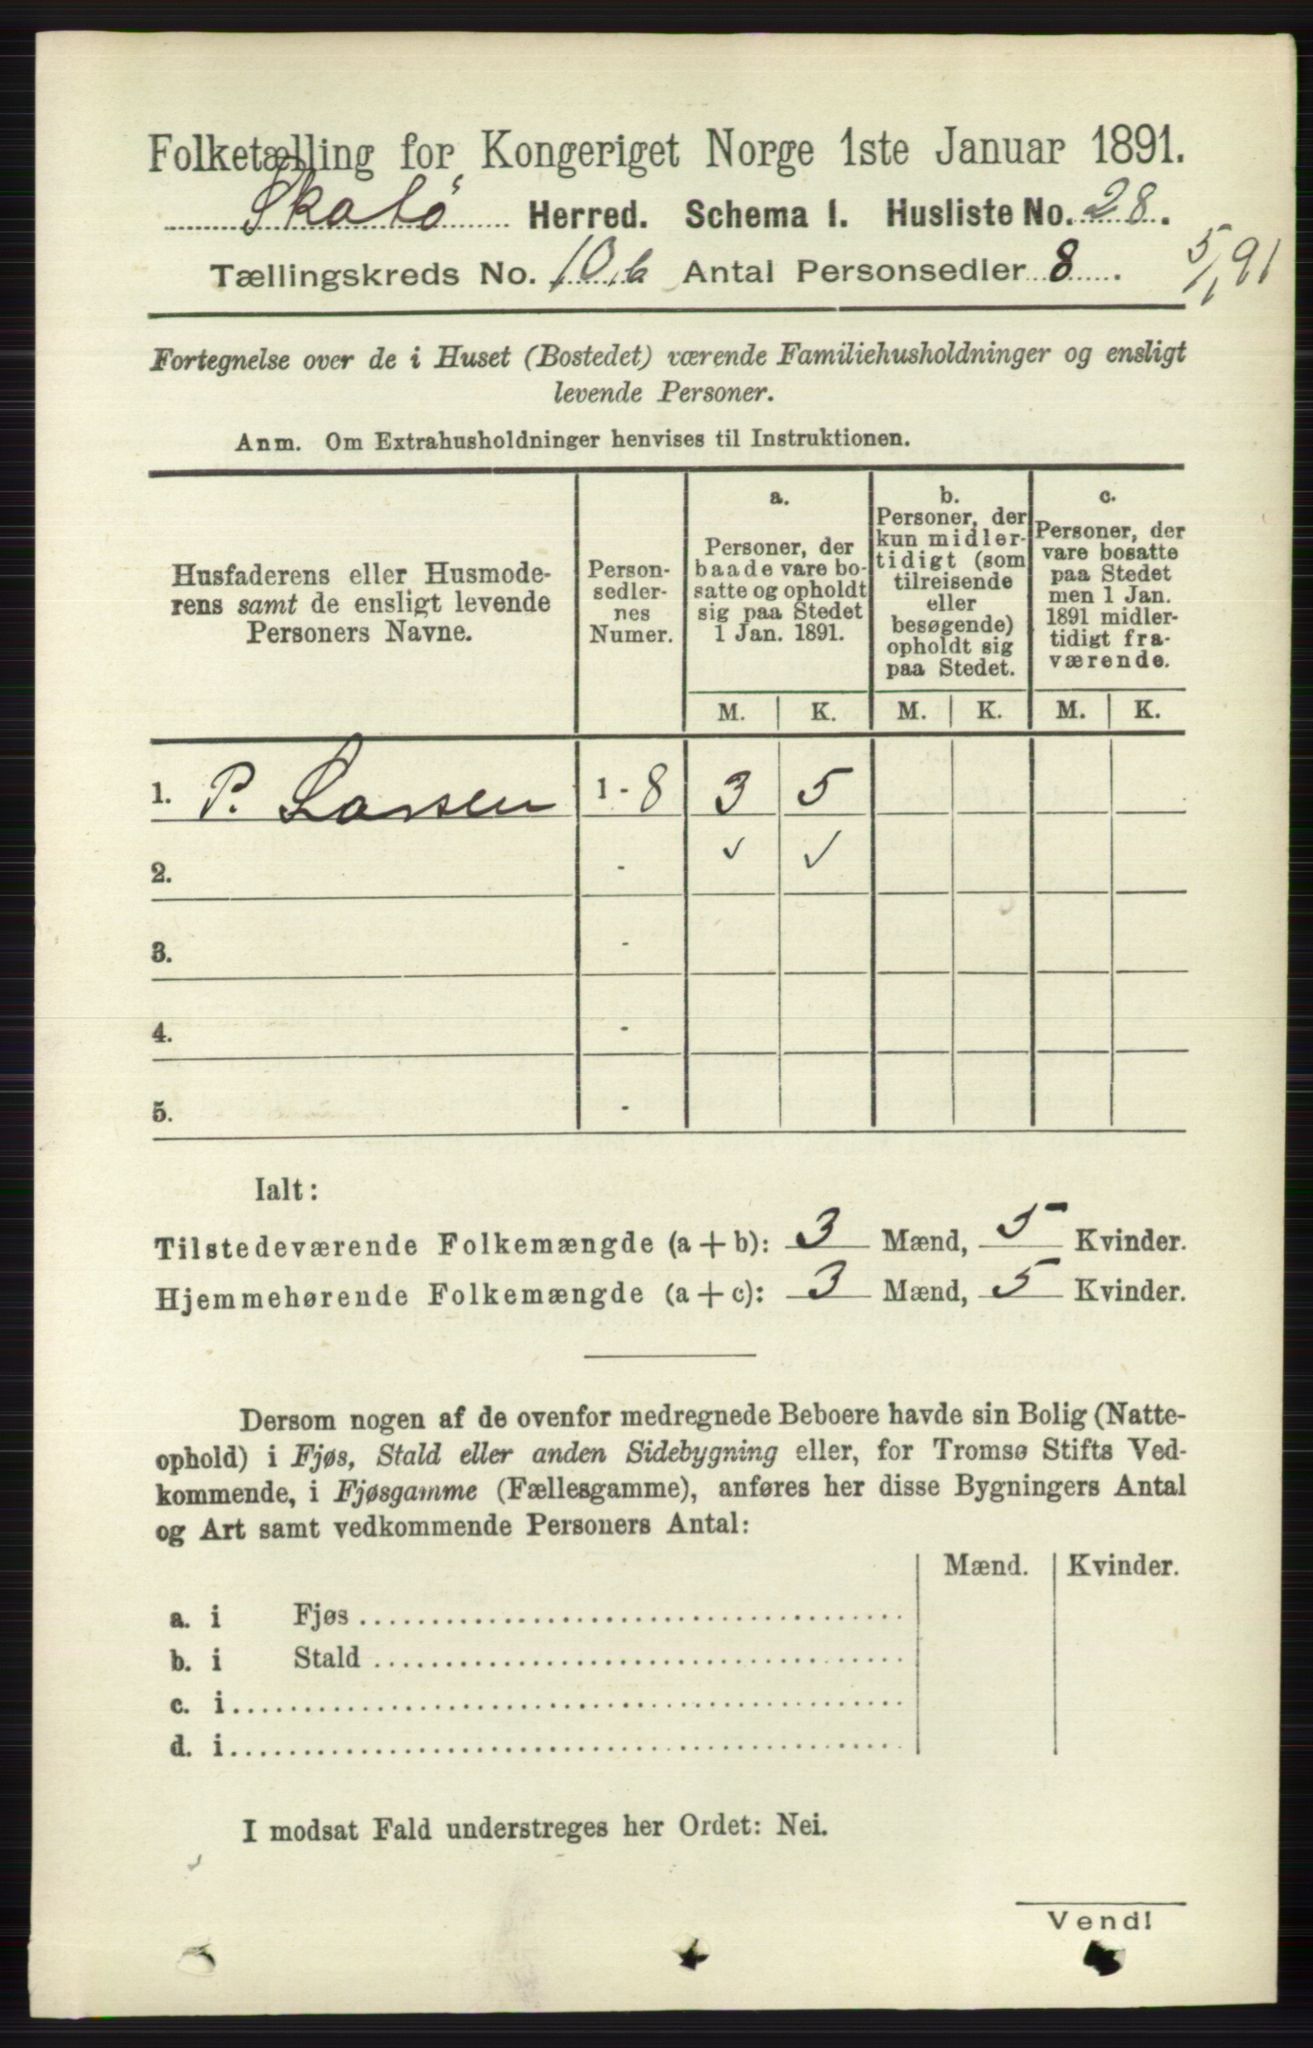 Folketælling for Kongeriget Norge 1ste Januar 1891.
Skatö Herred. Schema I. Husliste No. 28.
Tællingskreds No. 10 b Antal Personsedler 8.
5/1 91
Fortegnelse over de i Huset (Bostedet) værende Familiehusholdninger og ensligt
levende Personer.
Anm. Om Extrahusholdninger henvises til Instruktionen.
Husfaderens eller Husmode-
rens samt de ensligt levende
Personers Navne.
Person-
sedler-
nes
Numer.
a.
Personer, der
baade vare bo-
satte og opholdt
sig paa Stedet
1 Jan. 1891.
b.
Personer, der
kun midler-
tidigt (som
tilreisende
eller
besøgende)
opholdt sig
paa Stedet.
c.
Personer, der
vare bosatte
paa Stedet
men 1 Jan.
1891 midler-
tidigt fra-
værende.
M. K. M. K. M. K.
1. P. Larsen 1 - 8 3 5
2. - ✓ ✓
3. -
4. -
5. -
Ialt:
Tilstedeværende Folkemængde (a + b): 3 Mænd, 5 Kvinder.
Hjemmehørende Folkemængde (a + c): 3 Mænd, 5 Kvinder.
Dersom nogen af de ovenfor medregnede Beboere havde sin Bolig (Natte-
ophold) i Fjøs, Stald eller anden Sidebygning eller, for Tromsø Stifts Ved-
kommende, i Fjøsgamme (Fællesgamme), anføres her disse Bygningers Antal
og Art samt vedkommende Personers Antal:
Mænd. Kvinder.
a. i Fjøs
b. i Stald
c. i
d. i
I modsat Fald understreges her Ordet: Nei.
Vend!